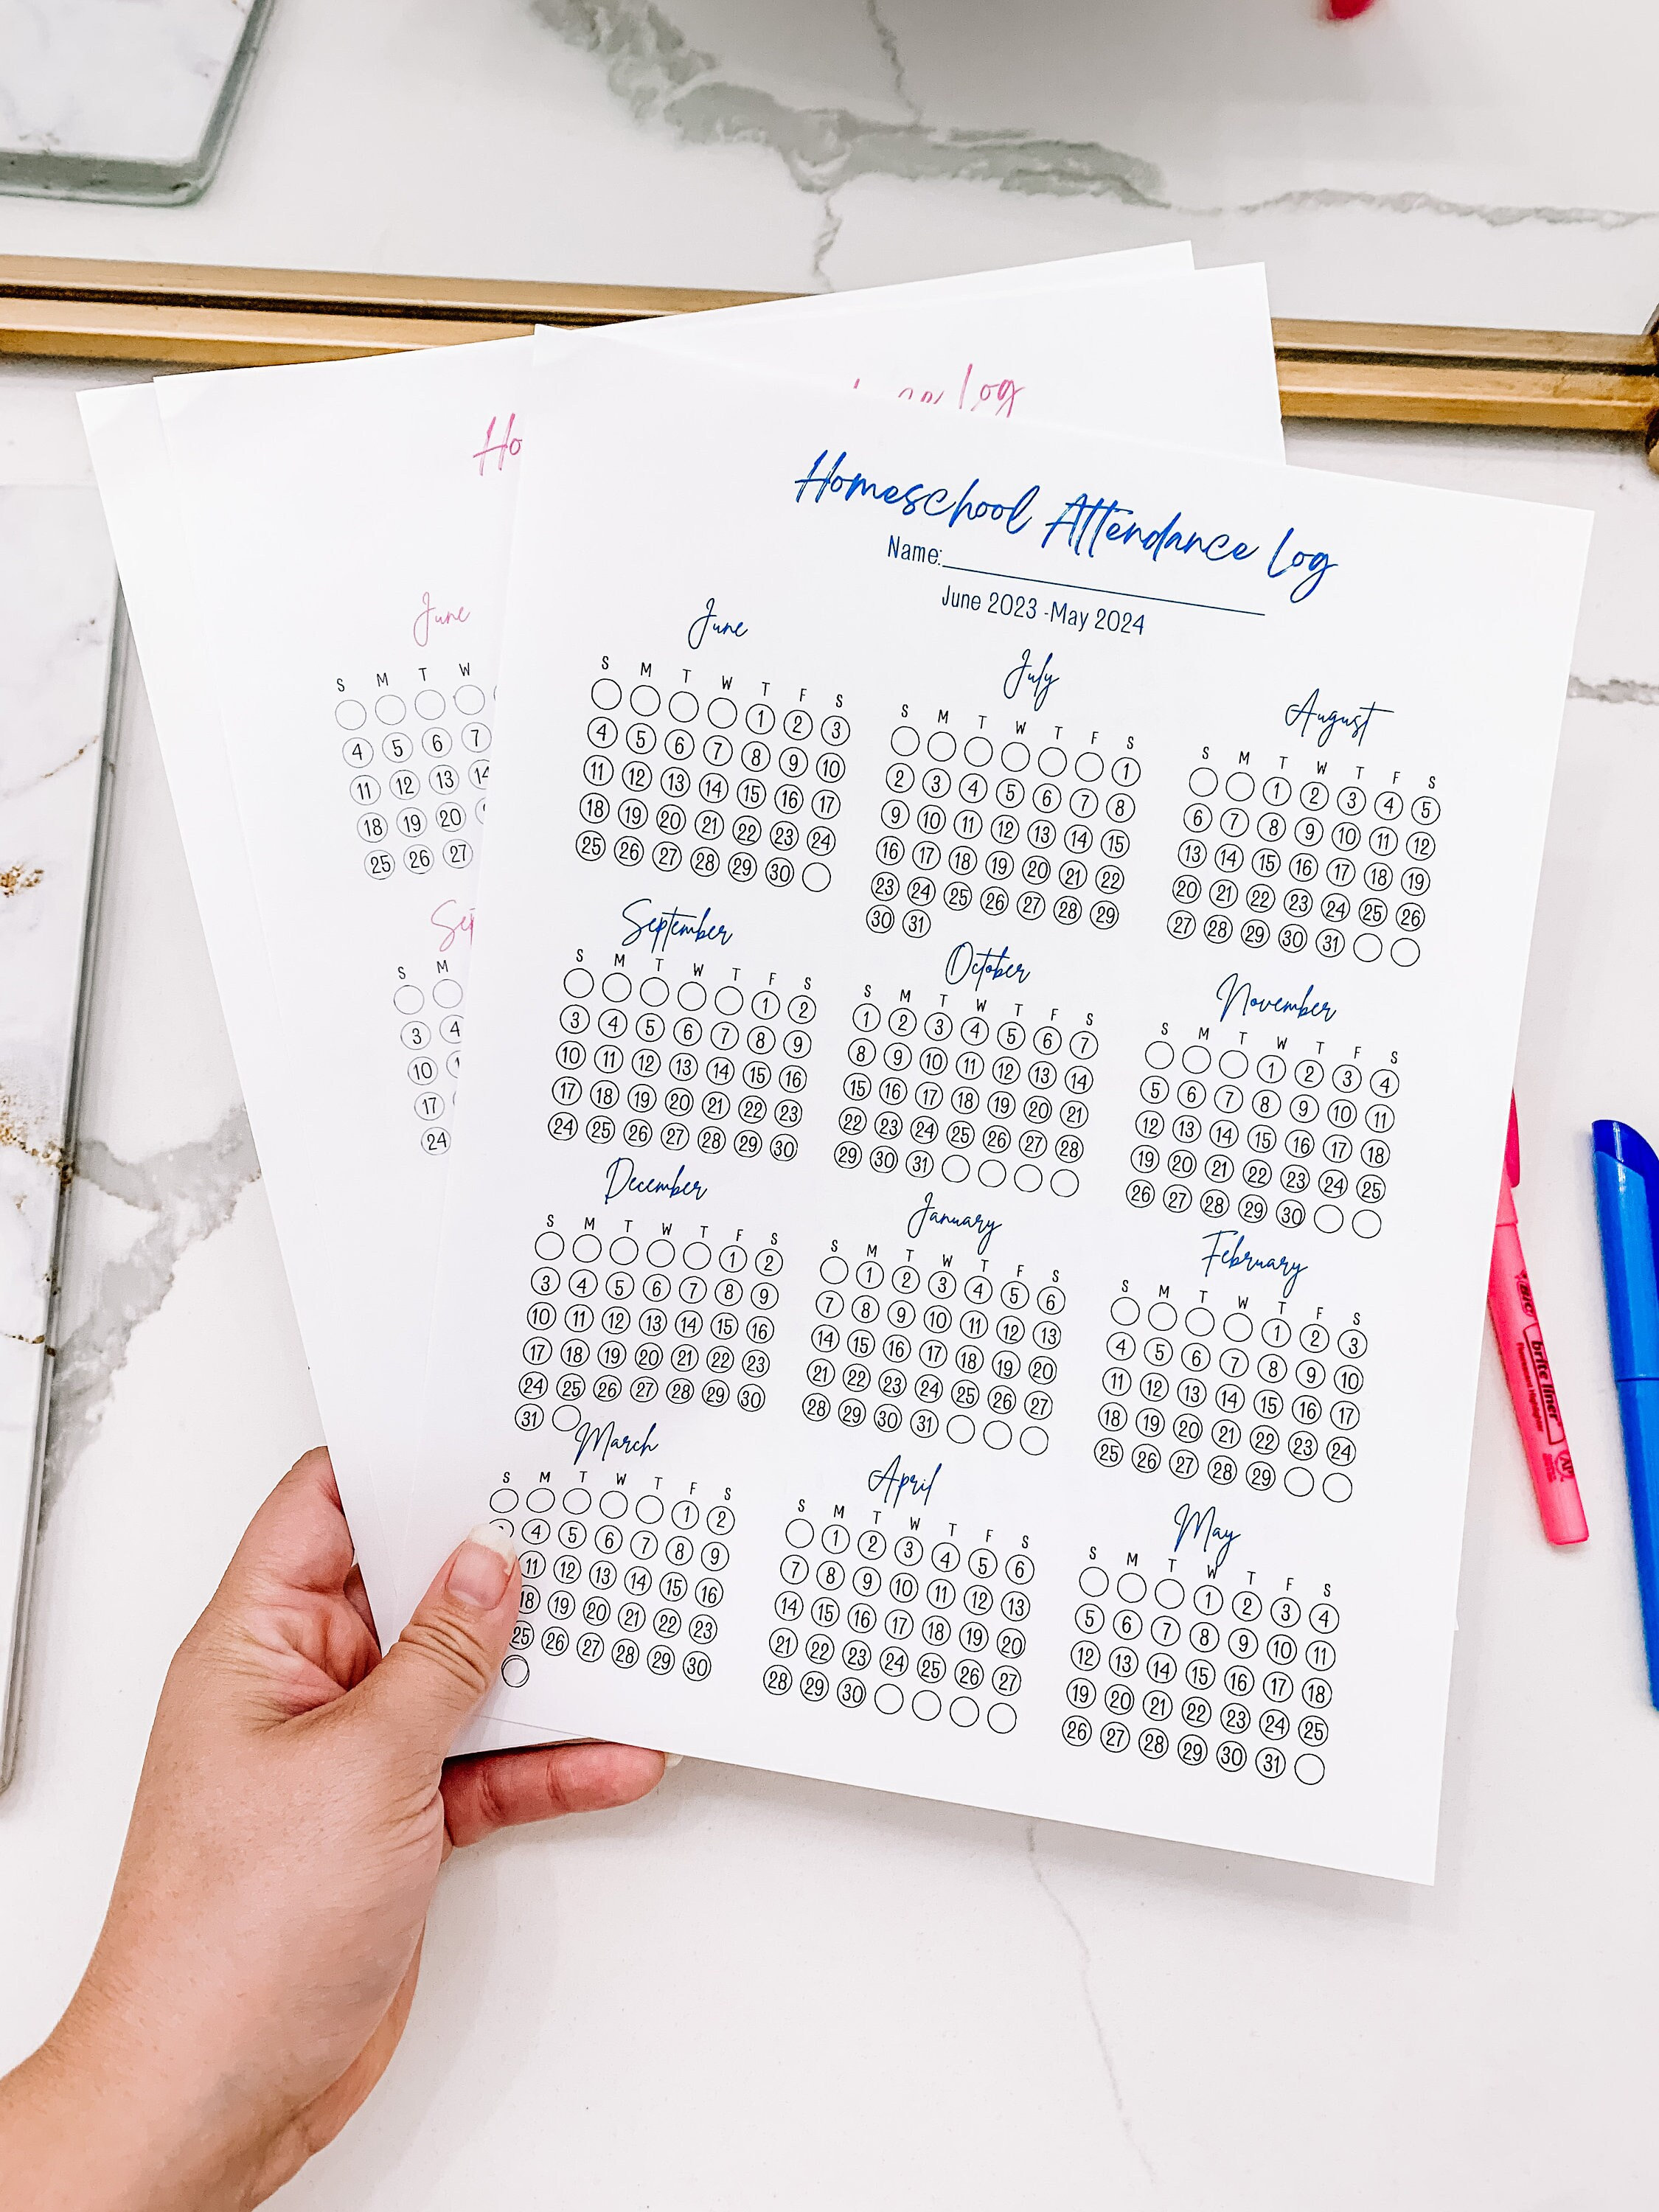 Log
Ho
Homeschool Attendance Log
Name:
June 2023 -May 2024
June
S M T W
4 5 6 7
11 12 13 14
18 19 20
25 26 27
Sep
S M
3 4
10
17
24
June
S M T W T F S
1 2 3
4 5 6 7 8 9 10
11 12 13 14 15 16 17
18 19 20 21 22 23 24
25 26 27 28 29 30
July
S M T W T F S
1
2 3 4 5 6 7 8
9 10 11 12 13 14 15
16 17 18 19 20 21 22
23 24 25 26 27 28 29
30 31
August
S M T W T F S
1 2 3 4 5
6 7 8 9 10 11 12
13 14 15 16 17 18 19
20 21 22 23 24 25 26
27 28 29 30 31
September
S M T W T F S
1 2
3 4 5 6 7 8 9
10 11 12 13 14 15 16
17 18 19 20 21 22 23
24 25 26 27 28 29 30
October
S M T W T F S
1 2 3 4 5 6 7
8 9 10 11 12 13 14
15 16 17 18 19 20 21
22 23 24 25 26 27 28
29 30 31
November
S M T W T F S
1 2 3 4
5 6 7 8 9 10 11
12 13 14 15 16 17 18
19 20 21 22 23 24 25
26 27 28 29 30
December
S M T W T F S
1 2
3 4 5 6 7 8 9
10 11 12 13 14 15 16
17 18 19 20 21 22 23
24 25 26 27 28 29 30
31
January
S M T W T F S
1 2 3 4 5 6
7 8 9 10 11 12 13
14 15 16 17 18 19 20
21 22 23 24 25 26 27
28 29 30 31
February
S M T W T F S
1 2 3
4 5 6 7 8 9 10
11 12 13 14 15 16 17
18 19 20 21 22 23 24
25 26 27 28 29
March
S M T W T F S
1 2
4 5 6 7 8 9
11 12 13 14 15 16
18 19 20 21 22 23
25 26 27 28 29 30
April
S M T W T F S
1 2 3 4 5 6
7 8 9 10 11 12 13
14 15 16 17 18 19 20
21 22 23 24 25 26 27
28 29 30
May
S M T W T F S
1 2 3 4
5 6 7 8 9 10 11
12 13 14 15 16 17 18
19 20 21 22 23 24 25
26 27 28 29 30 31
BIC brite liner